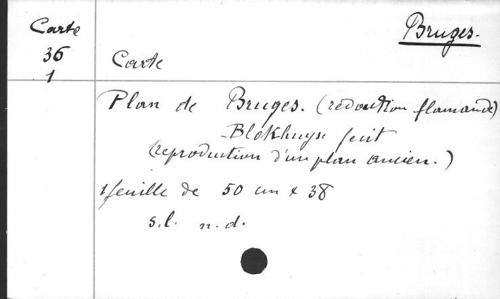 Carte
36
1
Bruges.
Carte
Plan de Bruges. (rédaction flamande)
Blokhuyse fecit
(reproduction d'un plan ancien.)
1 feuille de 50 cm x 38
s.l. n.d.